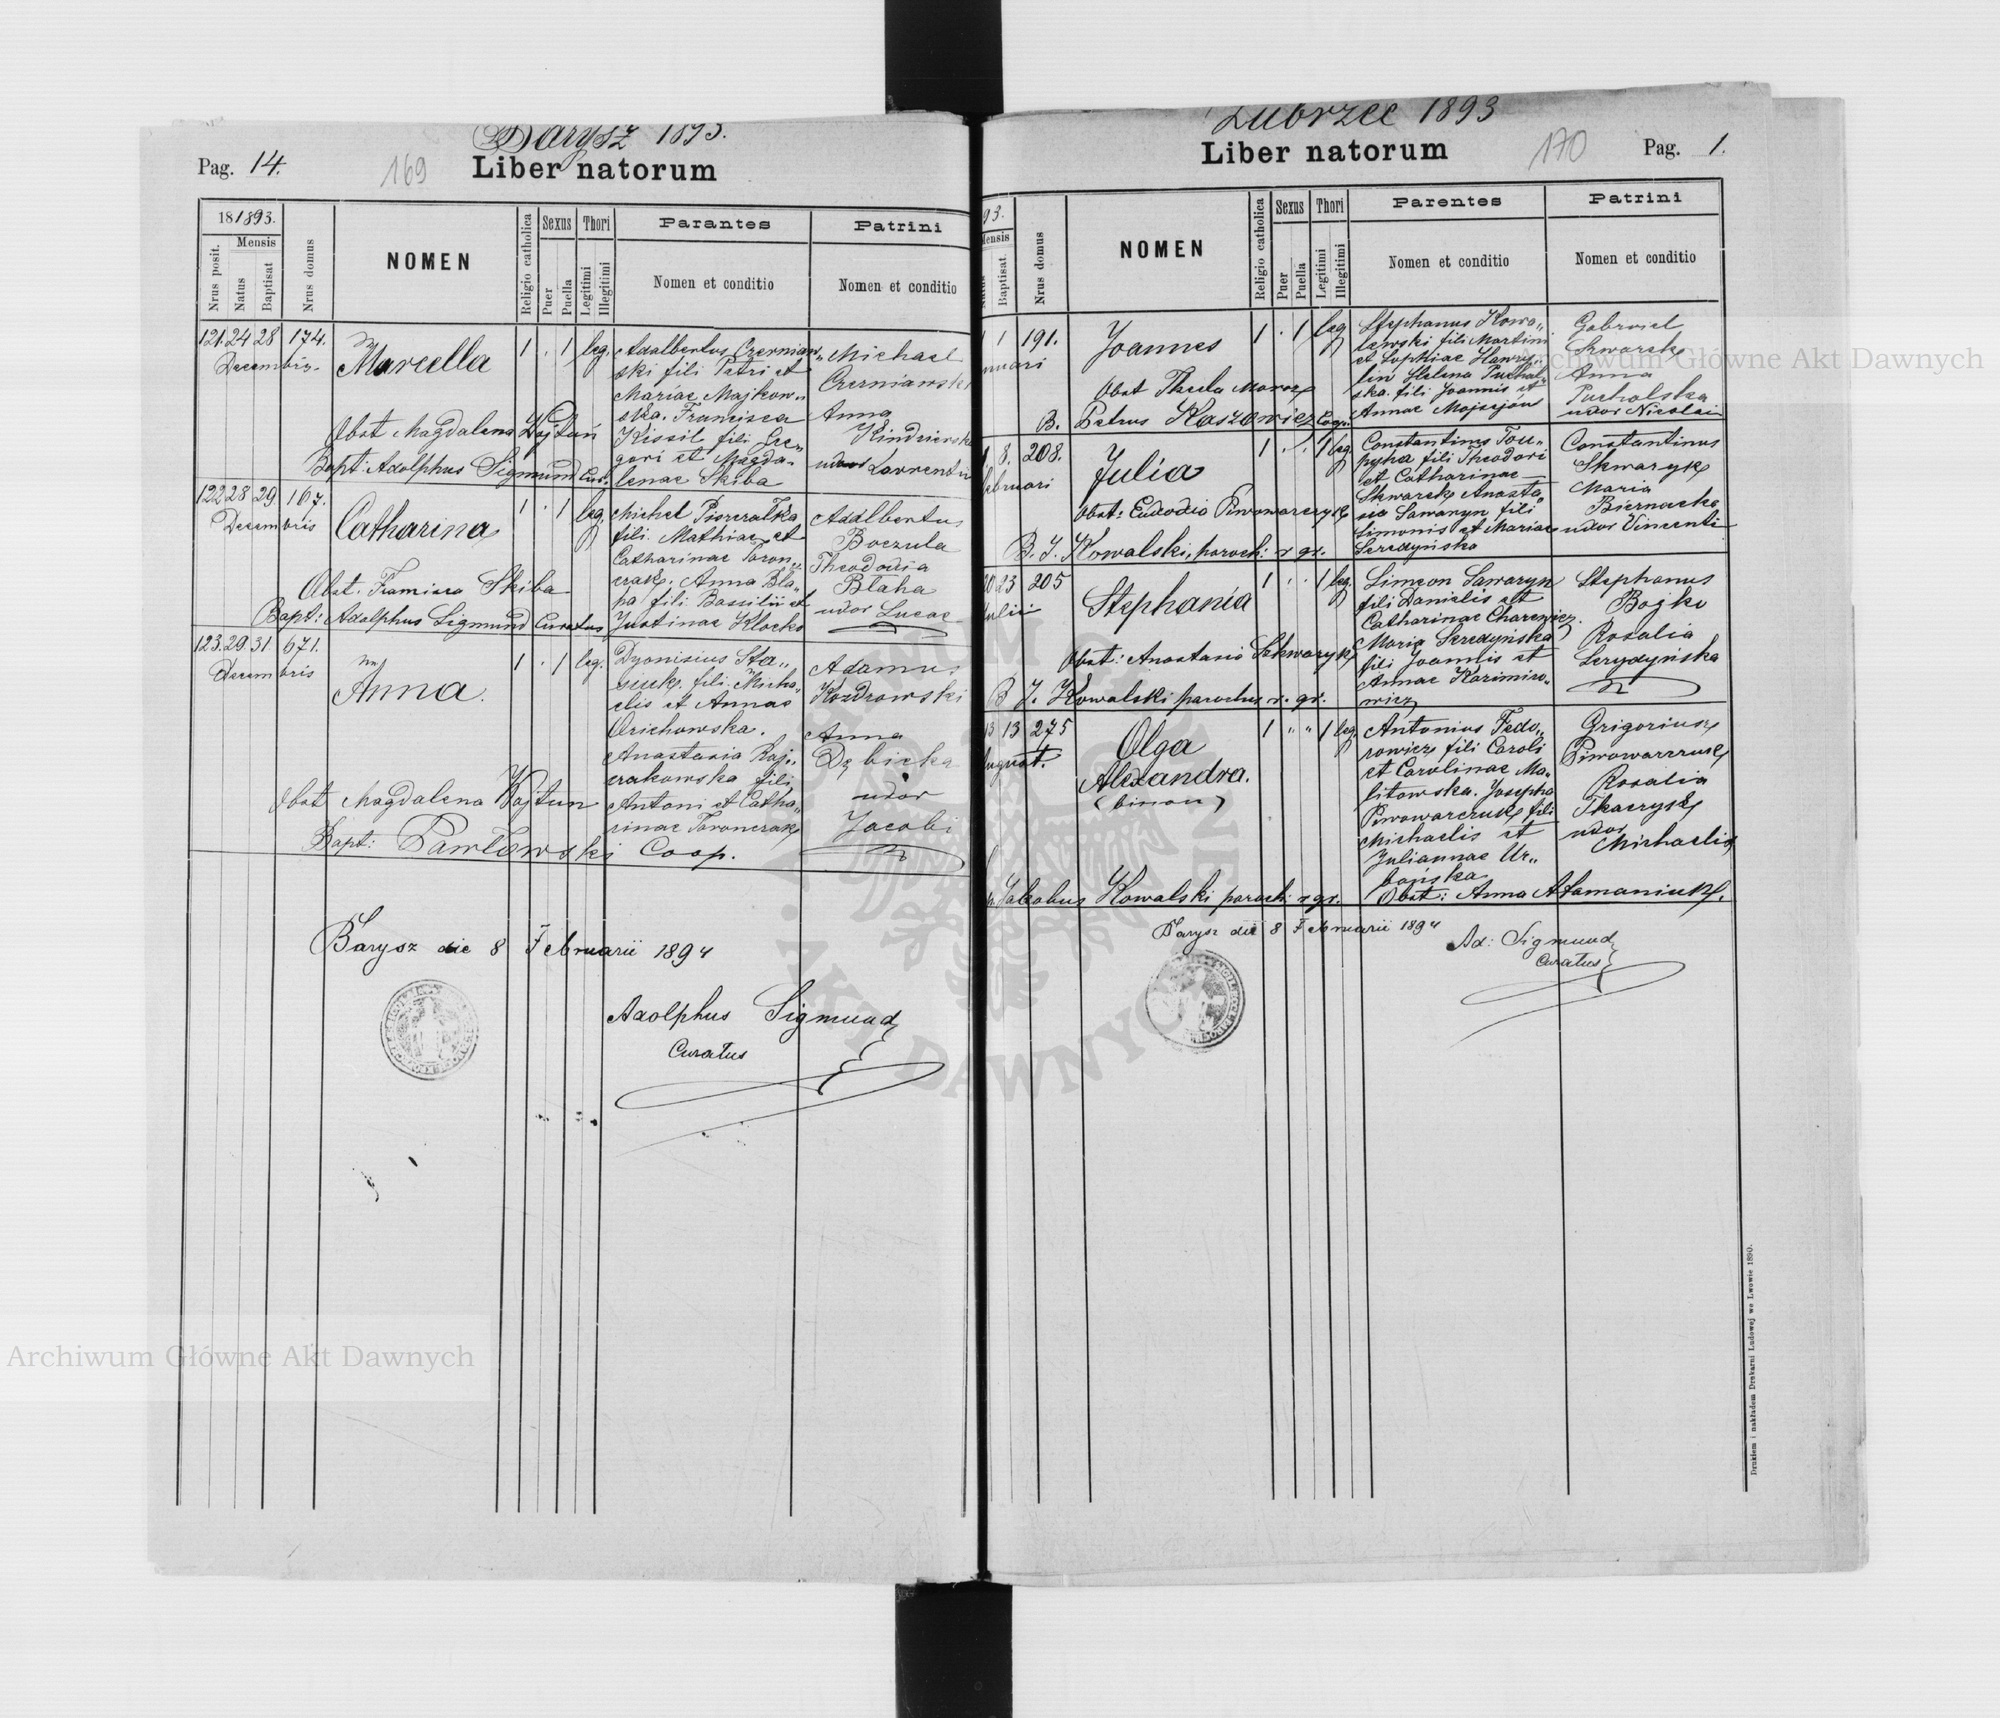 Barysz 1893.
Pag. 14.
169
Liber natorum
18 1893.
Nrus posit.
Mensis
Natus
Baptisat
Nrus domus
NOMEN
Religio catholica
Sexus
Puer
Puella
Thori
Legitimi
Illegitimi
Parantes
Nomen et conditio
Patrini
Nomen et conditio
121. 24 28 174.
Decembris.
Marcella
1 . 1 leg.
Adalbertus Czerniaw„
ski fili Petri et
Mariae Majkow„
ska. Francisca
Kissil fili Gre„
gori et Magda„
lenae Skiba
Michael
Czerniawski
Anna
uxor Laurentii
Obst Magdalena Wojtun
Bapt: Adolphus Sigmund Cur.
122 28 29 167.
Decembris
Catharina
1 . 1 leg.
Michel Piszczałka
fili. Mathiae et
Catharinae
Anna Bla„
ha fili Bassilii et
Justinae Klocko
Adalbertus
Boczula
Theodosia
Błaha
uxor Lucae
Obst. Skiba
Bapt: Adolphus Sigmund Curatus
123. 29 31 671.
Decembris
Anna.
1 . 1 leg.
Dyonisius Sta„
siuk. fili. Micha„
elis et Annae
Orichowska.
Anastasia Raj„
czakowska fili
Antoni et Catha„
rinae Toronczak
Adamus
Kozdrowski
Anna
Dębicka
uxor
Jacobi
Obst Magdalena Wojtun
Bapt: Pawłowski Coop.
Barysz die 8 Februarii 1894
Adolphus Sigmund
Curatus
Zubrzec 1893
Liber natorum
170
Pag. 1.
93.
Mensis
Natus
Baptisat.
Nrus domus
NOMEN
Religio catholica
Sexus
Puer
Puella
Thori
Legitimi
Illegitimi
Parentes
Nomen et conditio
Patrini
Nomen et conditio
1 191.
Joannes
1 . 1 leg
Stephanus Kowa„
lewski fili Martini
et Sophiae
Helena Puchal„
ska. fili Joannis et
Annae
Gabriel
Skwarek
Anna
Puchalska
uxor Nicolai
Obst Thecla
B. Petrus Kaszowicz Coop.
8. 208.
Februari
Julia
1 . . 1 leg
Constantinus Tou„
pyha fili Theodori
et Catharinae
Skwarek Anasta„
sia Sawaryn fili
Simonis et Mariae
Seredyńska
Constantinus
Skwaryk
Maria
Biernacka
uxor Vincenti
Obst: Eudodio Piwowarczyk
B. J. Kowalski, paroch: r. gr.
20 23 205
Julii
Stephania
1 . . 1 leg
Simeon Sawaryn
fili Danielis et
Catharinae Charewicz.
Maria Seredyńska
fili Joannis et
Annae Kazimiro„
wicz
Stephanus
Bojko
Rosalia
Serydyńska
Obst: Anastasia Skwaryk
B J. Kowalski parochus r. gr.
13 13 275
August.
Olga
Alexandra.
(binom)
1 „ „ 1 leg
Antonius Fedo„
rowicz fili Caroli
et Carolinae Ma„
litowska. Josepha
Piwowarczuk fili
Michaelis et
Juliannae Ur„
bańska
Grigoriusz
Piwowarczuk
Rosalia
Tkaczysk
uxor
Michaelis
Obst: Anna Atamaniuk.
Jakobus Kowalski paroch: r gr.
Barysz die 8 Februarii 1894
Ad: Sigmund
Curatus
Drukiem i nakładem Drukarni Ludowej we Lwowie 1890.
Archiwum Główne Akt Dawnych
Archiwum Główne Akt Dawnych